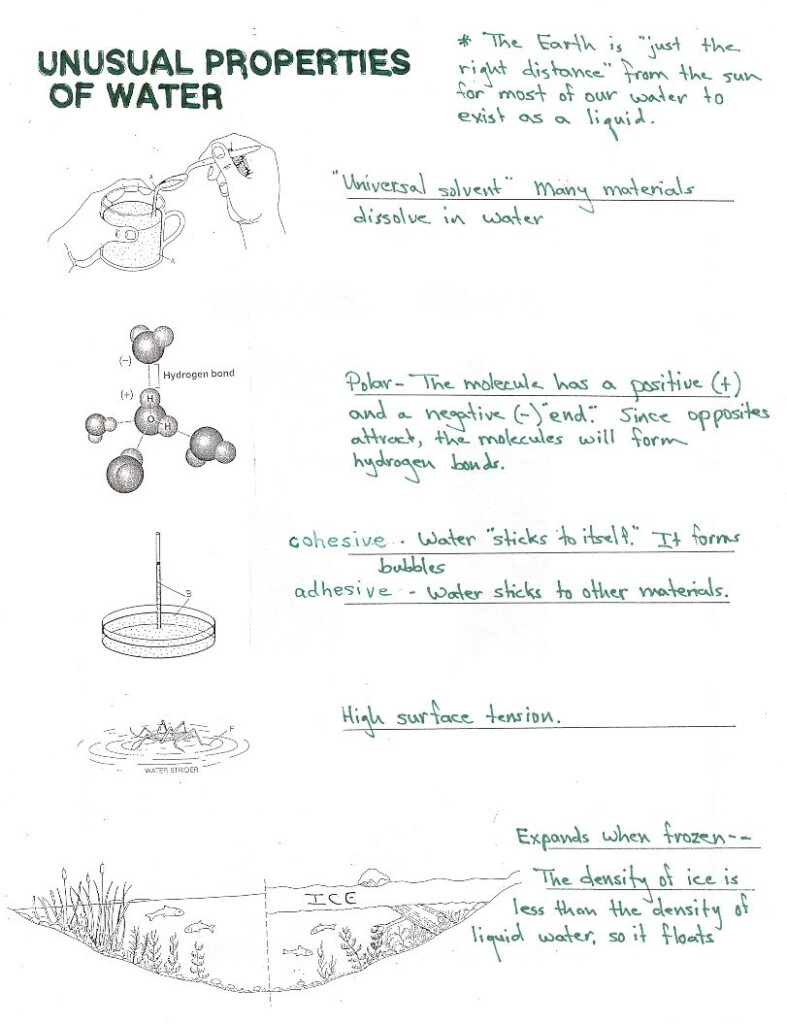 UNUSUAL PROPERTIES
OF WATER
* The Earth is "just the
right distance" from the sun
for most of our water to
exist as a liquid.
"Universal solvent" Many materials
dissolve in water
A
A
(-)
Hydrogen bond
(+)
H
O
H
Polar- The molecule has a positive (+)
and a negative (-) "end." Since opposites
attract, the molecules will form
hydrogen bonds.
cohesive - Water "sticks to itself." It forms
bubbles
adhesive - Water sticks to other materials.
B
High surface tension.
F
WATER STRIDER
Expands when frozen--
The density of ice is
less than the density of
liquid water, so it floats
ICE